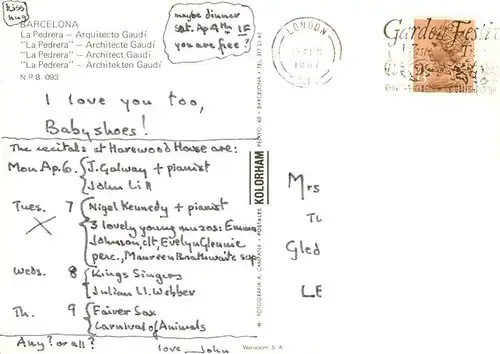 kiss
hug
BARCELONA
La Pedrera - Arquitecto Gaudí
"La Pedrera" - Architecte Gaudí
"La Pedrera" - Architect Gaudí
"La Pedrera" - Architekten Gaudí
N.º B. 093
maybe dinner
sat. Ap 4th IF
you are free?
LONDON
1987
Garden Festiv
I love you too,
Babyshoes!
The recitals at Harewood House are:
Mon Ap. 6. J. Galway + pianist
John Lill
Tues. 7 Nigel Kennedy + pianist
X 3 lovely young muzos: Emma
Johnson, clt, Evelyn Glennie
perc., Maureen Brathwaite sop
Weds. 8 Kings Singers
Julian Ll. Webber
Th. 9 Fairer Sax
Carnival of Animals
Any? or all?
love, John
KOLORHAM
FOTOGRAFIA A. CAMPAÑA - POSTALES
PELAYO, 60 - BARCELONA - TEL. 317 21 43
Mrs
Gled
LE